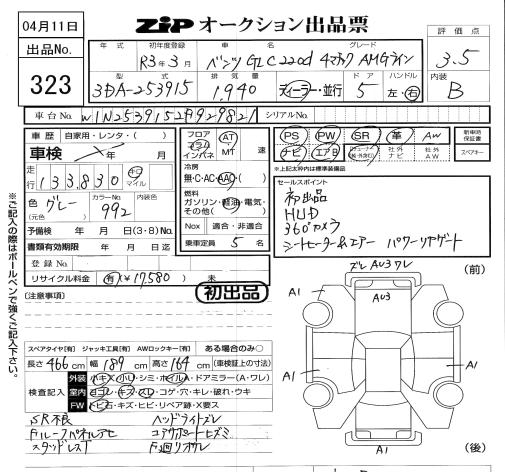 04月11日
ZIP オークション出品票
出品No. 323
年式 初年度登録 車名 グレード 評価点
R3年3月 ベンツ GLC220d 4マチック AMGライン 3.5
型式 排気量 ドア ハンドル 内装
3DA-253915 1,940 ディーラー・並行 5 左・右 B
車台No. W1N2539152F929821 シリアルNo.
車歴 自家用・レンタ・( )
車検 年 月
走行 133,830 キロ マイル
色 グレー カラーNo. 992 内装色
(元色)
予備検 年 月 日(3・8)No.
書類有効期限 年 月 日迄
登録No.
リサイクル料金 有(¥17,580) 未
フロア コラム インパネ AT MT 速
冷房
無・C・AC・AAC・( )
燃料
ガソリン・軽油・電気・その他( )
Nox 適合・非適合
乗車定員 5 名
PS PW SR 革 AW 新車時保証書
ナビ エアB 社外ナビ 社外AW スペアキー
※上記太枠内は標準装備品
セールスポイント
初出品
HUD
360°カメラ
シートヒーター&エアー パワーリヤゲート
初出品
(注意事項)
スペアタイヤ[有] ジャッキ工具[有] AWロックキー[有] ある場合のみ○
長さ 466 cm 幅 189 cm 高さ 164 cm (車検証上の寸法)
検査記入
外装 小キズ・小凹・シミ・ホイルA・ドアミラー(A・ワレ)
室内 ヨゴレ・キズ・スレ・コゲ・穴・キレ・破れ・ウキ
FW トビ石・キズ・ヒビ・リペア跡・X要ス
SR不良 ヘッドライトズレ
Fルーフパネルアセ コアサポートヒズミ
スタッドレス
ズレ AU3 ワレ (前)
AU3
A1 A1
A1 A1
A1 (後)
※ご記入の際はボールペンで強くご記入下さい。